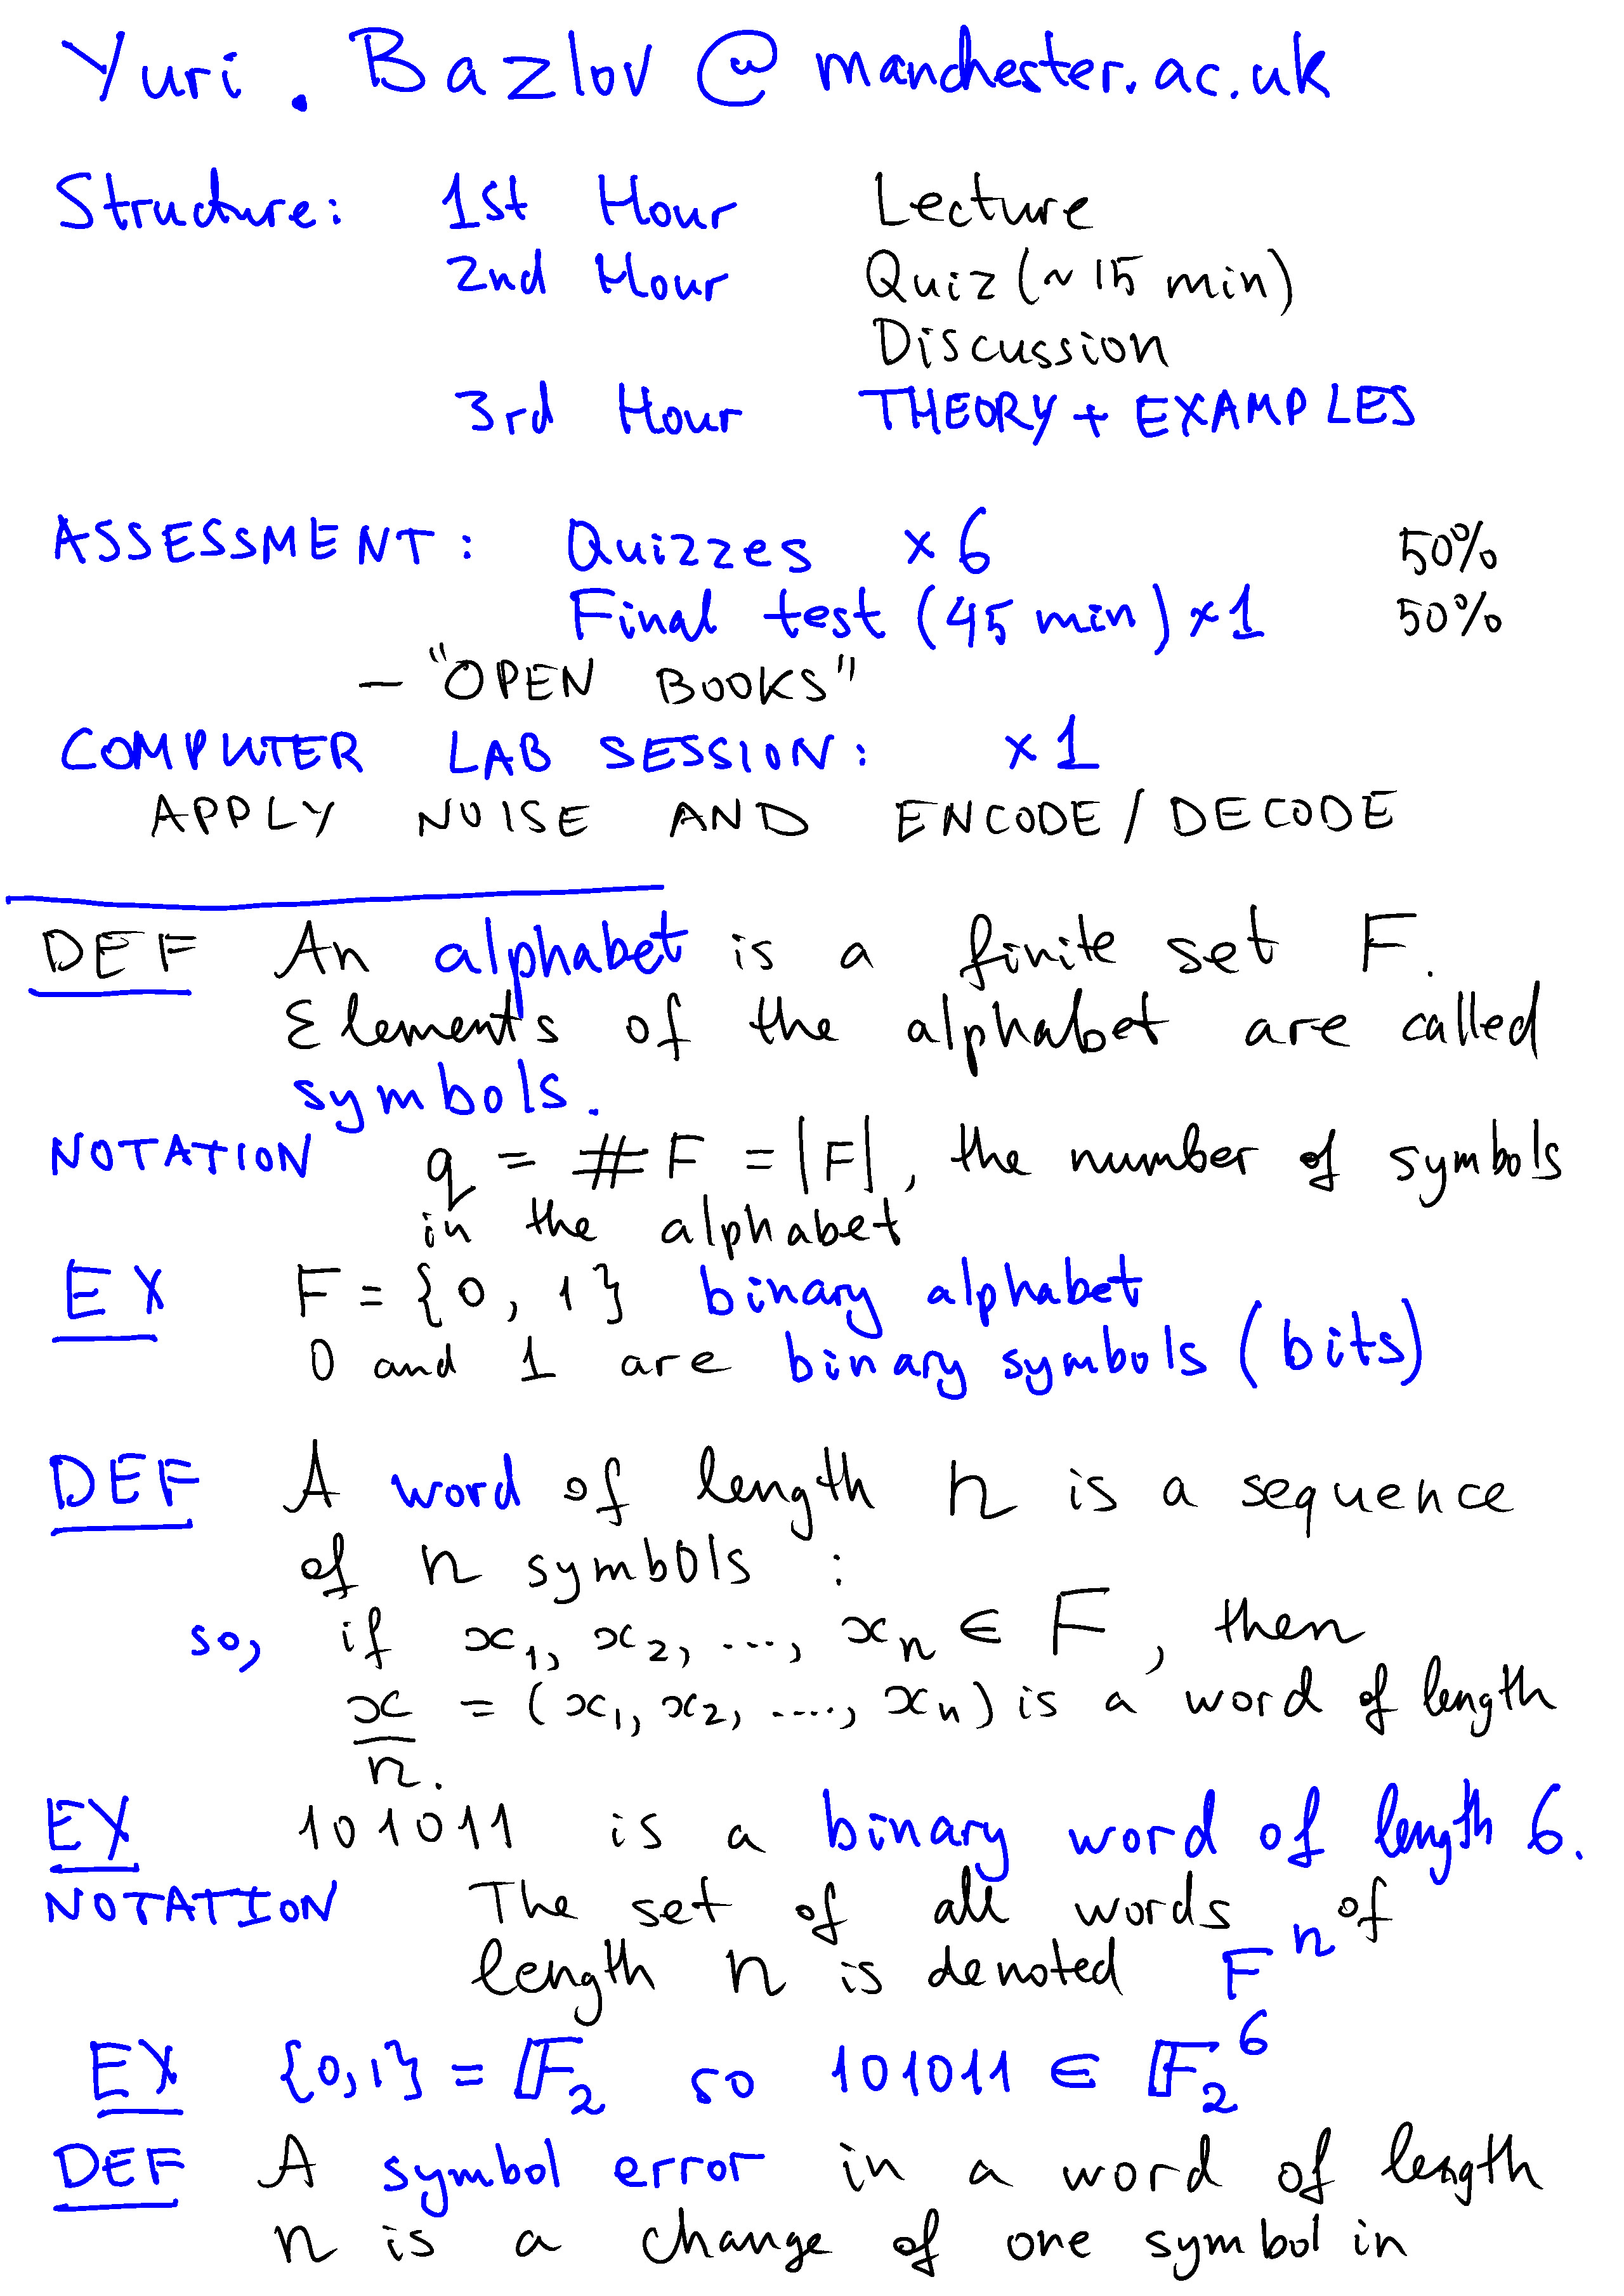 Yuri. Bazlov @ manchester.ac.uk
Structure: 1st Hour Lecture
2nd Hour Quiz (~15 min)
Discussion
3rd Hour THEORY + EXAMPLES
ASSESSMENT: Quizzes ×6 50%
Final test (45 min) ×1 50%
— "OPEN BOOKS"
COMPUTER LAB SESSION: ×1
APPLY NOISE AND ENCODE / DECODE
DEF An alphabet is a finite set F.
Elements of the alphabet are called
symbols.
NOTATION q = #F = |F|, the number of symbols
in the alphabet
EX F = {0, 1} binary alphabet
0 and 1 are binary symbols (bits)
DEF A word of length n is a sequence
of n symbols :
so, if x₁, x₂, ..., xₙ ∈ F, then
x = (x₁, x₂, ...., xₙ) is a word of length
n.
EX 101011 is a binary word of length 6.
NOTATION The set of all words of
length n is denoted Fⁿ
EX {0,1} = 𝔽₂ so 101011 ∈ 𝔽₂⁶
DEF A symbol error in a word of length
n is a change of one symbol in